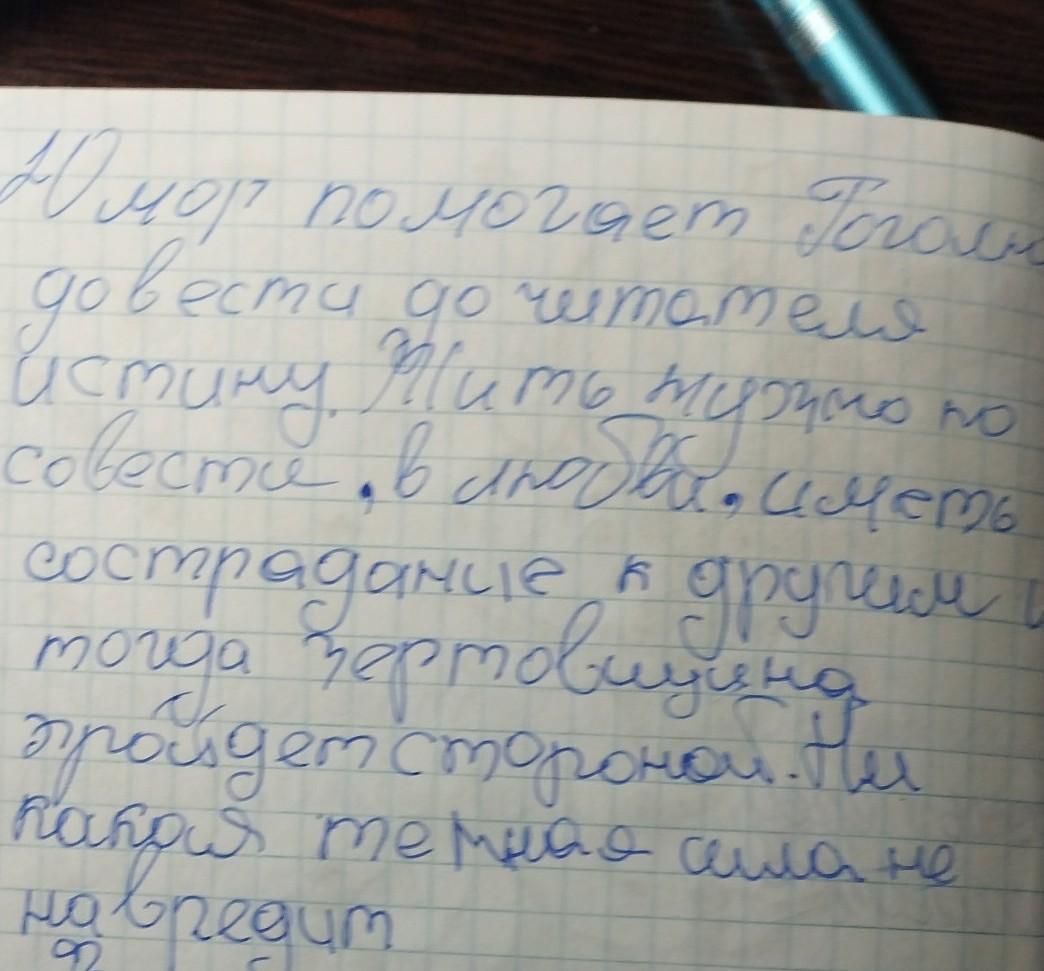 Юмор помогает Гоголю
довести до читателя
истину. Жить нужно по
совести, в любви, иметь
сострадание к другим и
тогда чертовщина
пройдет стороной. Ни
какая темная сила не
навредит